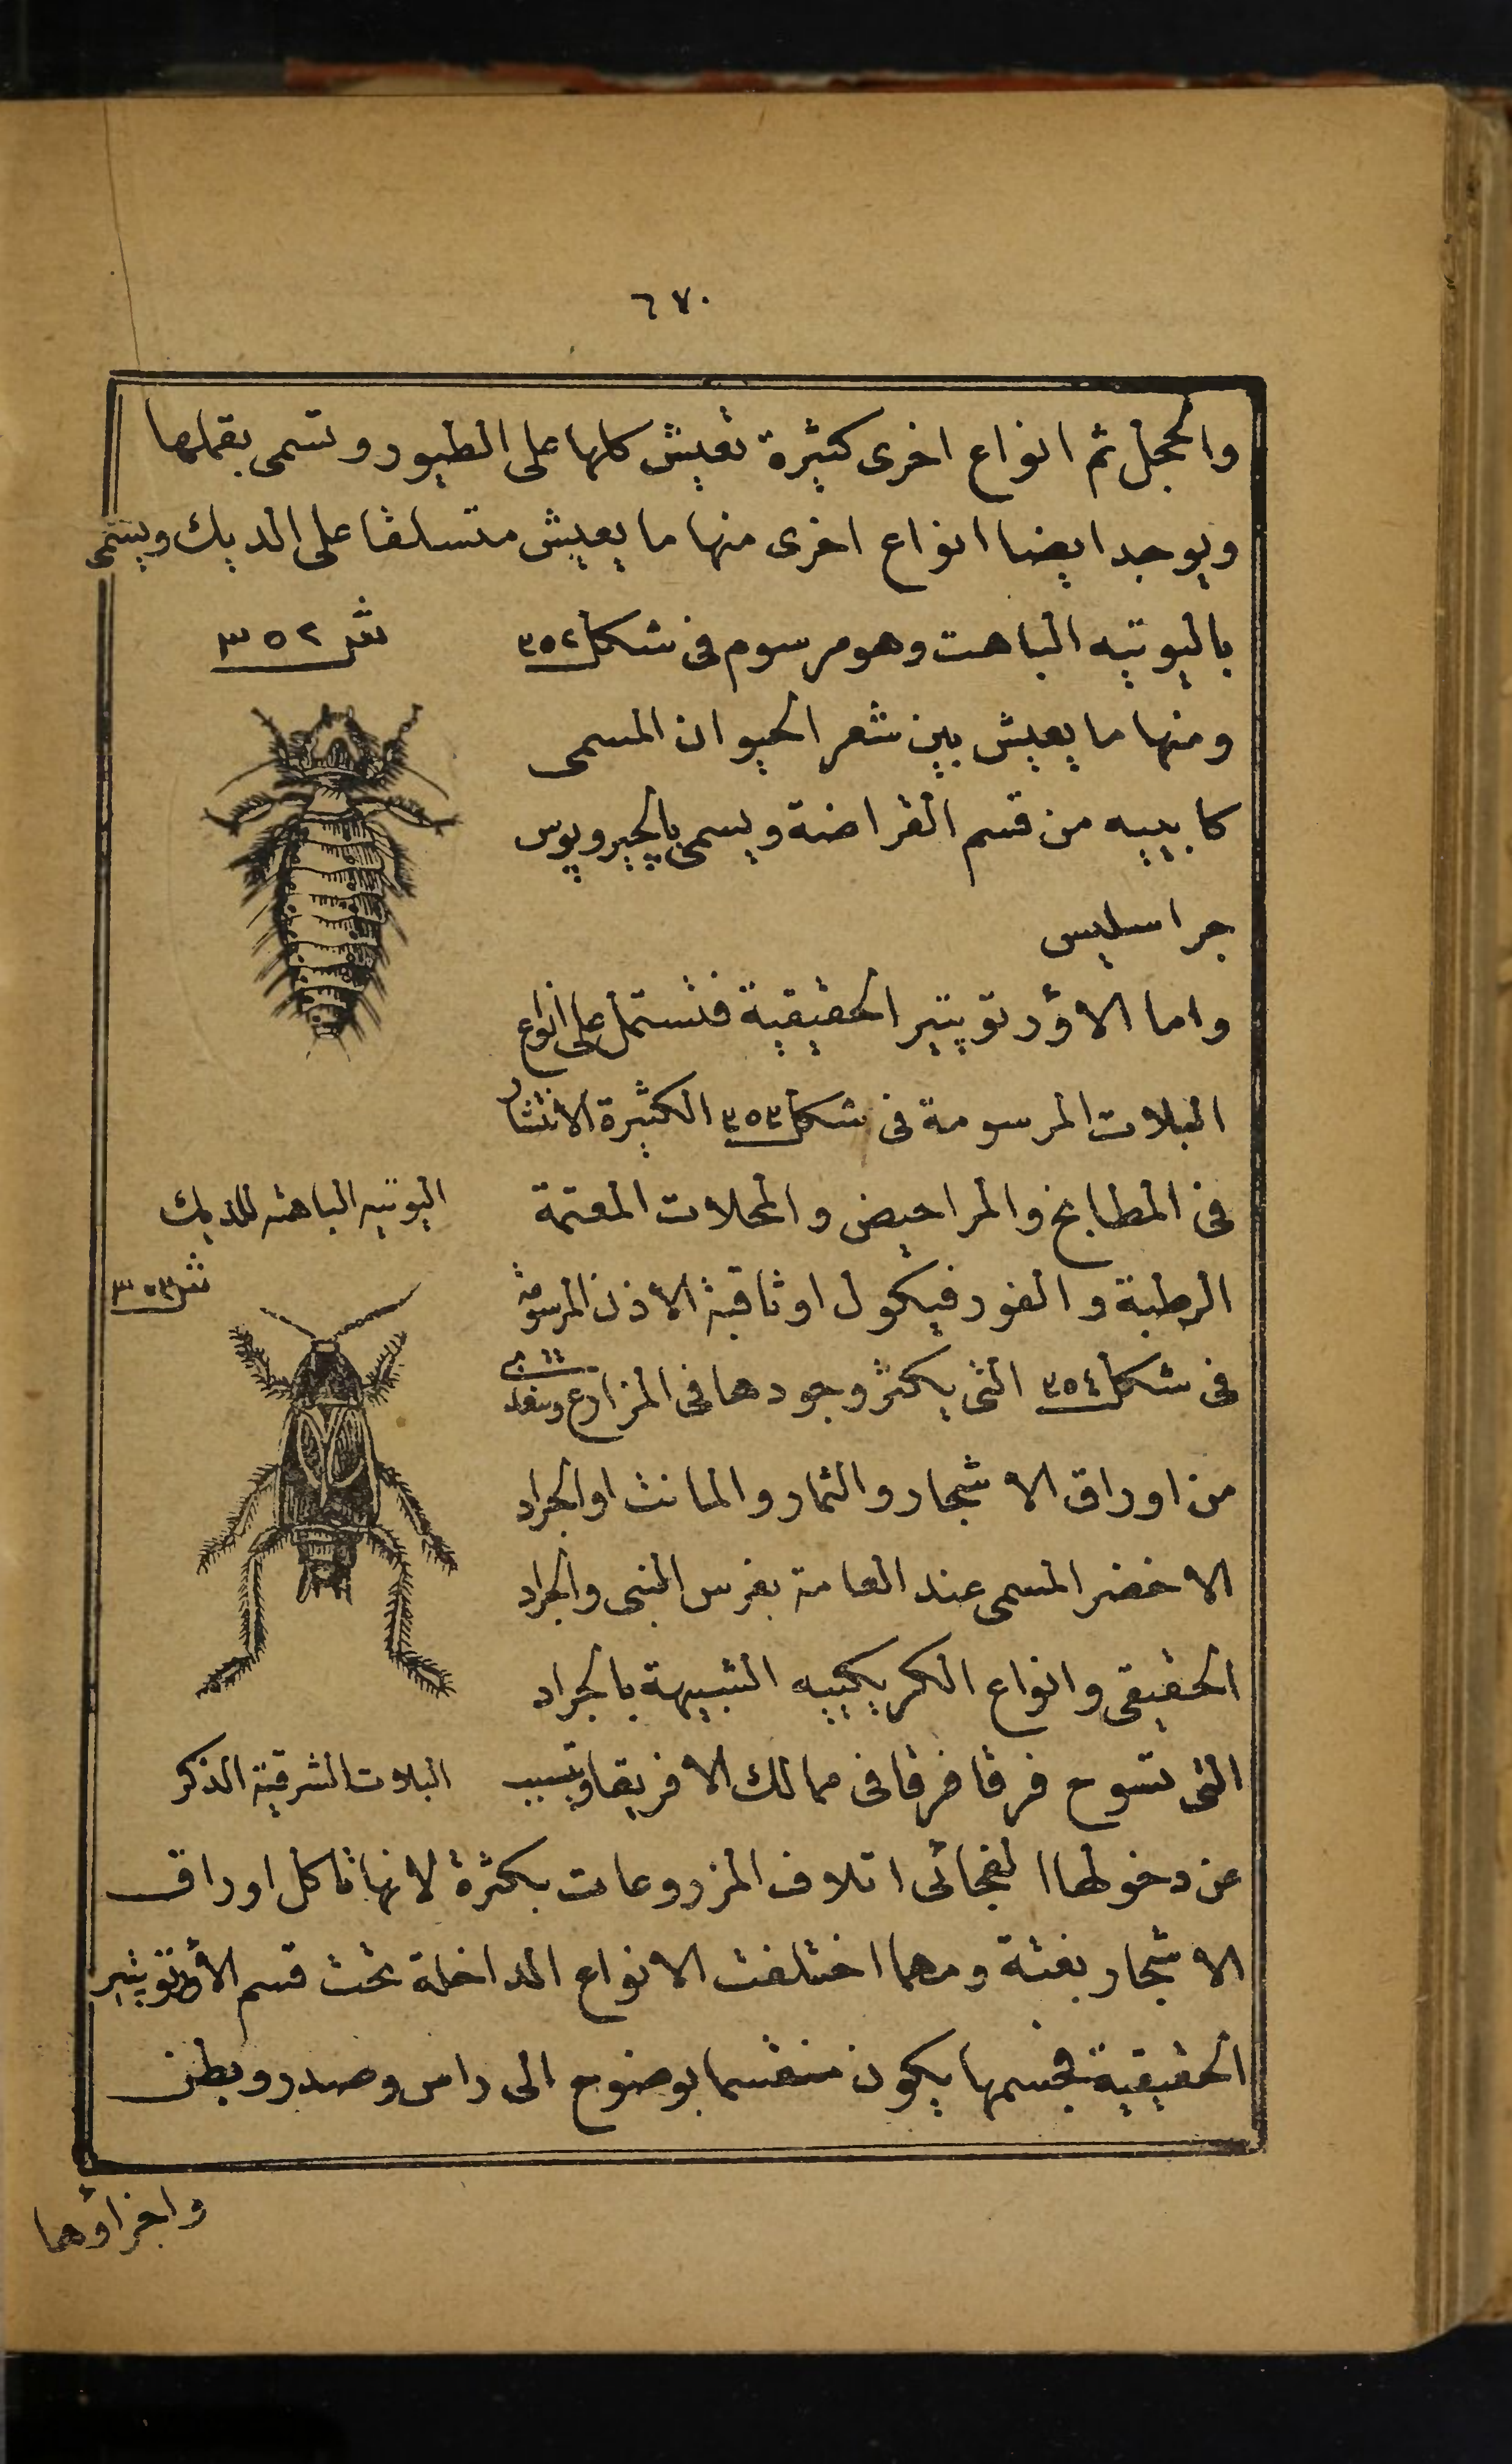 ٦٧٠
والحجل ثم انواع اخرى كثيرة تعيش كلها على الطيور وتسمى بقملها
ويوجد ايضا انواع اخرى منها ما يعيش متسلقا على الديك ويسمى
باليوتيه الباهت وهو مرسوم فى شكل ٣٥٢
ش ٣٥٢
ومنها ما يعيش بين شعر الحيوان المسمى
كابييه من قسم القراضة ويسمى بالجيروپوس
جراسليس
واما الاؤرتوپتير الحقيقية فتشتمل على انواع
البلات المرسومة فى شكل ٣٥٣ الكثيرة الانتشار
فى المطابخ والمراحيض والمحلات المعتمة
اليوتيه الباهته للديك
الرطبة والفورفيكول او ثاقبة الاذن المرسومة
ش ٣٥٣
فى شكل ٣٥٤ التى يكثر وجودها فى المزارع وتتغذى
من اوراق الاشجار والثمار والمانت او الجراد
الاخضر المسمى عند العامة بفرس النبى والجراد
الحقيقى وانواع الكريكييه الشبيهة بالجراد
التى تسوح فرقا فرقا فى ممالك الافريقا ويتسبب
البلات الشرقية الذكر
عن دخولها الفجائى اتلاف المزروعات بكثرة لانها تاكل اوراق
الاشجار بغتة ومهما اختلفت الانواع الداخلة تحت قسم الاؤرتوپتير
الحقيقية فجسمها يكون منقسما بوضوح الى راس وصدر وبطن
واجزاؤها